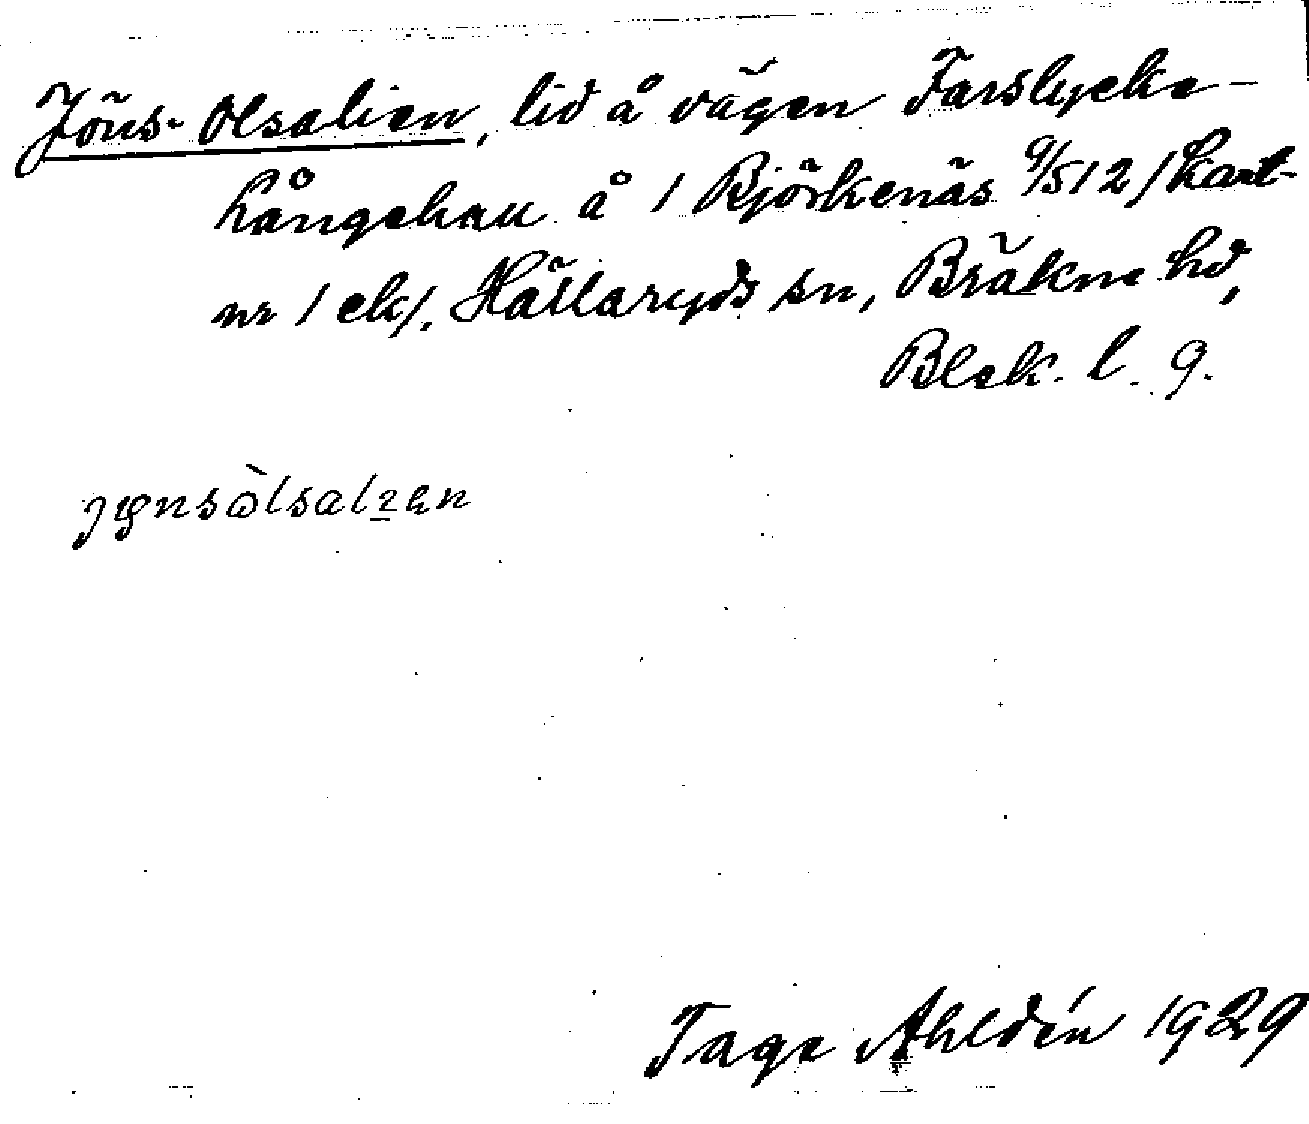 Jöns-Olsalien, lid å vägen Farslycke-
Långehau å 1 Björkenäs 9/512 / kart-
nr 1 ek/. Hällaryds sn, Bräkne hd,
Blek. l. 9.
Tage Ahldén 1929